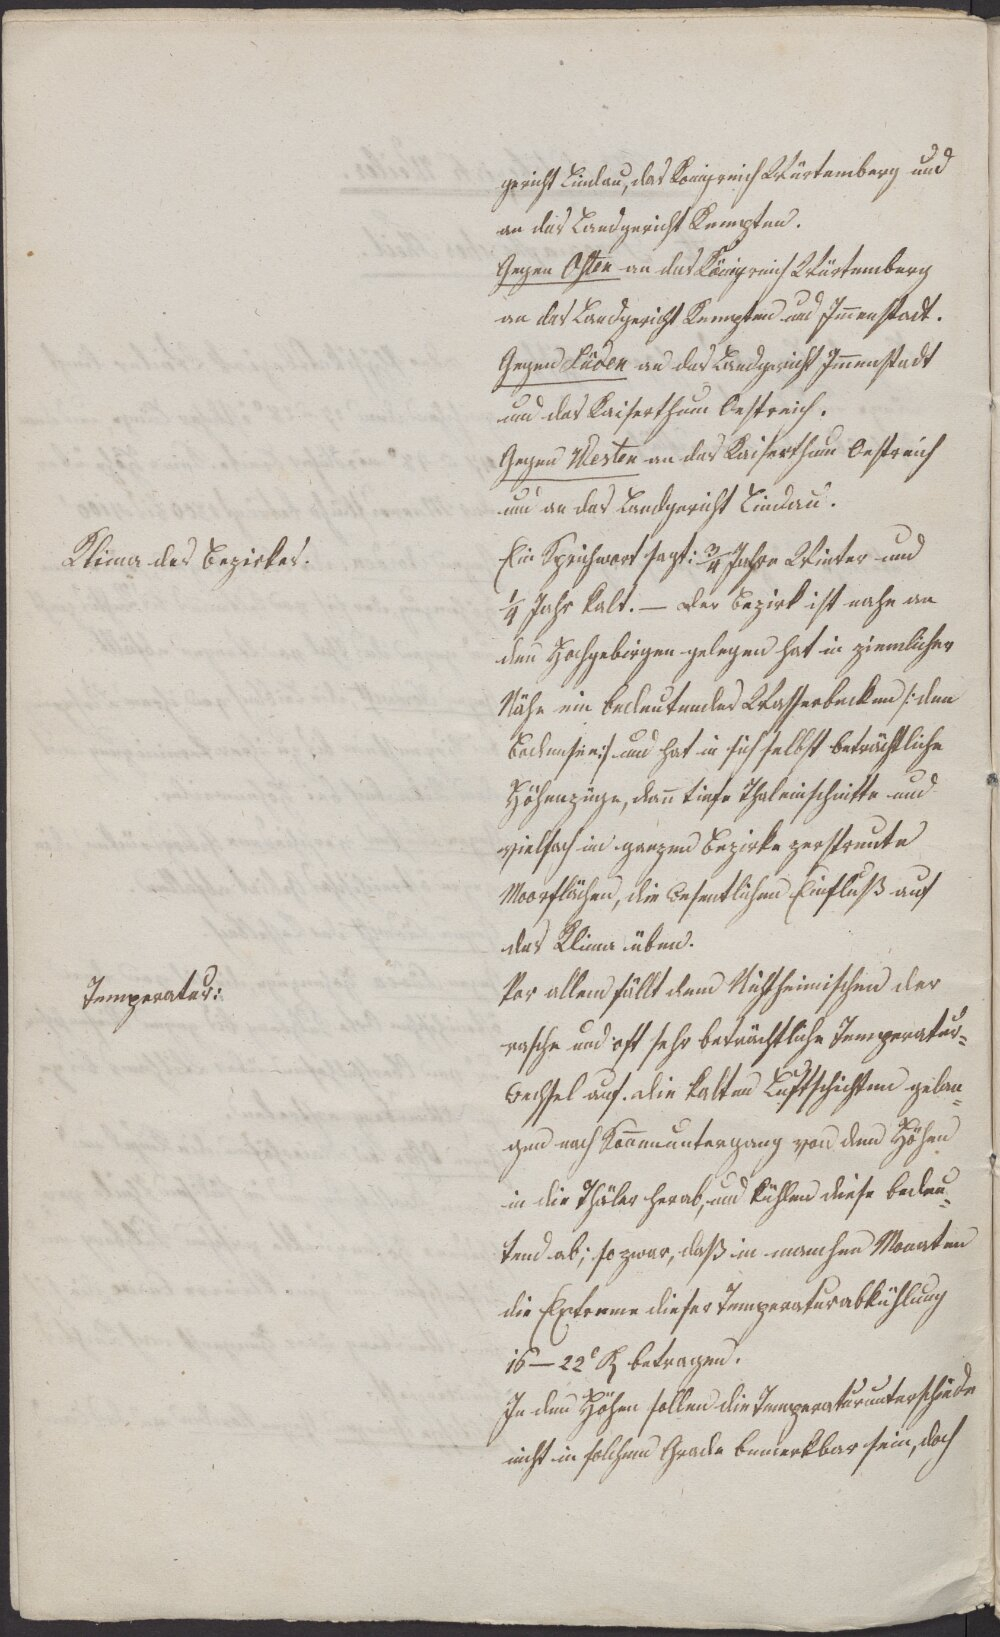 gericht Lindau, das Königreich Würtemberg und
an das Landgericht Kempten.
Gegen Osten an das Königreich Würtemberg
an das Landgericht Kempten und Immenstadt.
Gegen Süden an das Landgericht Immenstadt
und das Kaiserthum Oestreich.
Gegen Westen an das Kaiserthum Oestreich
und an das Landgericht Lindau.
Klima des Bezirkes.
Ein Sprichwort sagt: 3/4 Jahre Winter und
1/4 Jahr kalt. — Der Bezirk ist nahe an
den Hochgebirgen gelegen hat in ziemlicher
Nähe ein bedeutendes Wasserbecken /: den
Bodensee :/ und hat in sich selbst beträchtliche
Höhenzüge, dan̄ tiefe Thaleinschnitte und
vielfach im ganzen Bezirke zerstreute
Moorflächen, die wesentlichen Einfluß auf
das Klima üben.
Temperatur:
Vor allem fällt dem Nichtheimischen der
rasche und oft sehr beträchtliche Temperatur=
wechsel auf. Die kalten Luftschichten gelan=
gen nach Son̄enuntergang von den Höhen
in die Thäler herab, und kühlen diese bedeu=
tend ab; so zwar, daß in manchen Monaten
die Extreme dieser Temperaturabkühlung
16–22° R betragen.
In den Höhen sollen die Temperaturunterschiede
nicht in solchem Grade bemerkbar sein, doch